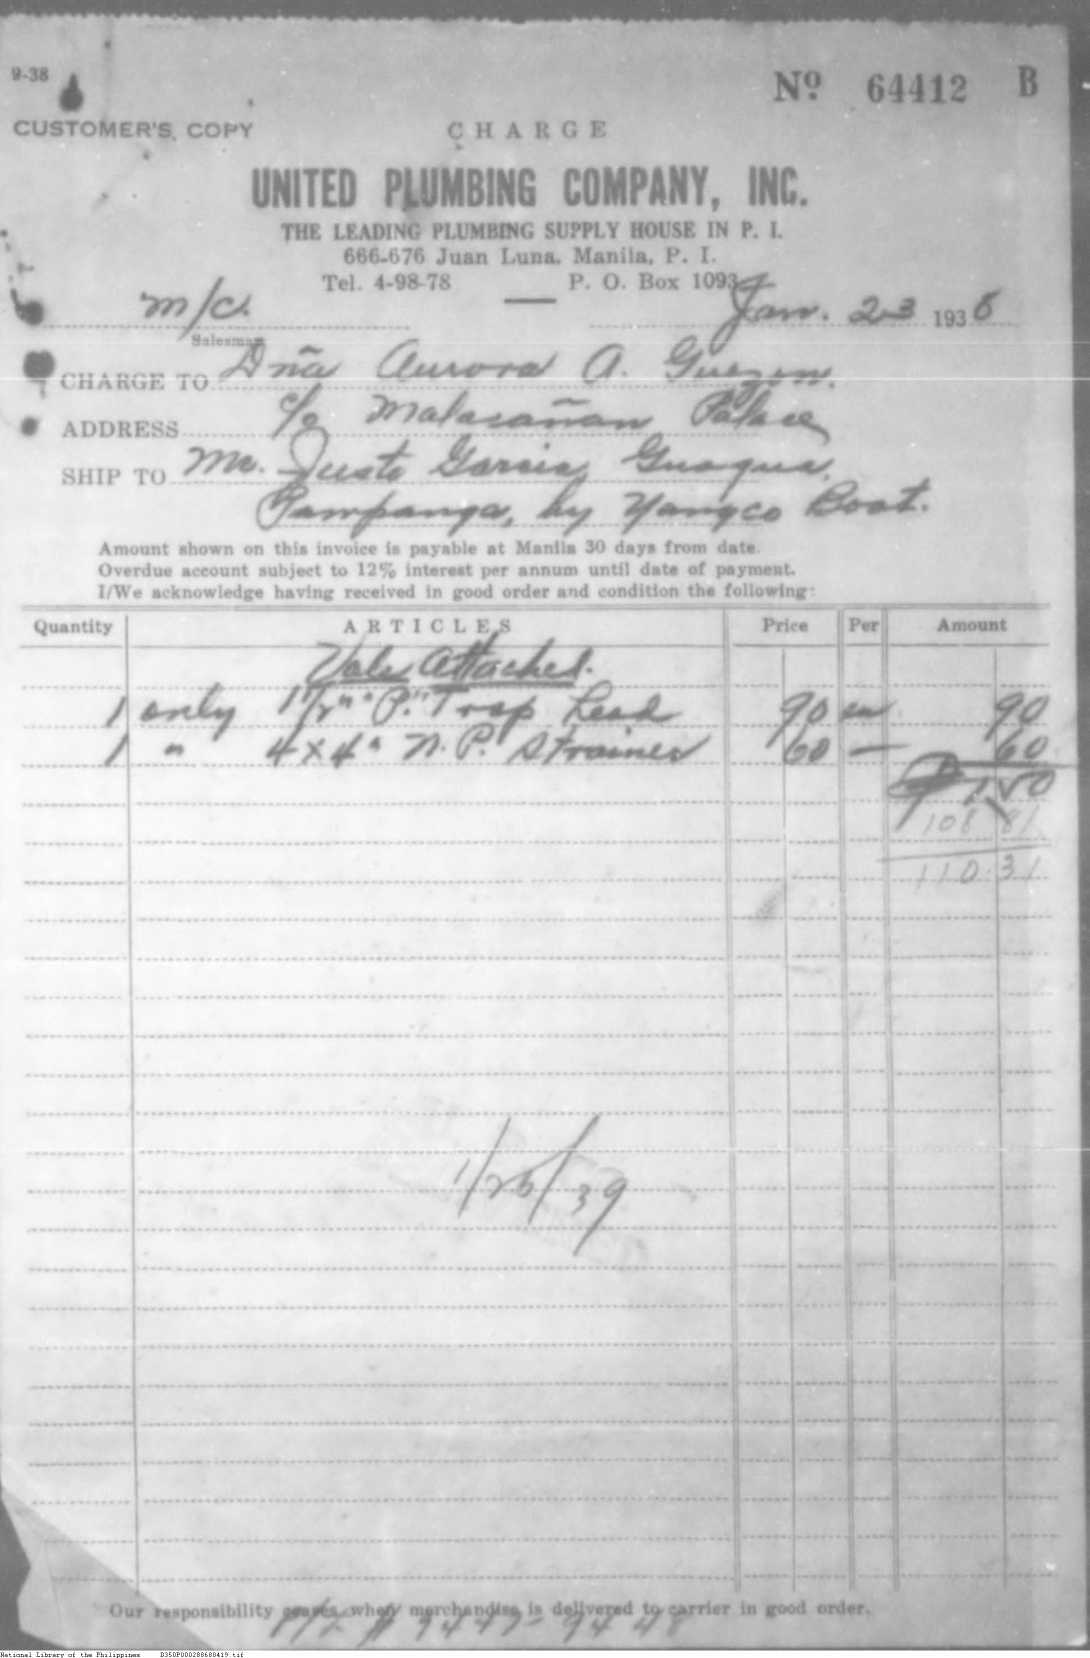 9-38
Nº 64412 B
CUSTOMER'S COPY
CHARGE
UNITED PLUMBING COMPANY, INC.
THE LEADING PLUMBING SUPPLY HOUSE IN P. I.
666-676 Juan Luna, Manila, P. I.
Tel. 4-98-78 P. O. Box 1093
m/c. Jan. 23 1938
Salesman
CHARGE TO Dña Aurora A. Quezon.
ADDRESS c/o Malacañan Palace
SHIP TO Mr. Justo Garcia, Guagua,
Pampanga, by Yangco Boat.
Amount shown on this invoice is payable at Manila 30 days from date.
Overdue account subject to 12% interest per annum until date of payment.
I/We acknowledge having received in good order and condition the following:
Quantity ARTICLES Price Per Amount
Vale Attached.
1 only 1 1/2" "P." Trap Lead 90 ea 90
1 " 4 x 4" N. P. Strainer 60 — 60
₱ 1 50
108 81
110.31
1/26/39
Our responsibility ceases when merchandise is delivered to carrier in good order.
# 9447-9448
National Library of the Philippines D350P000288680419.tif